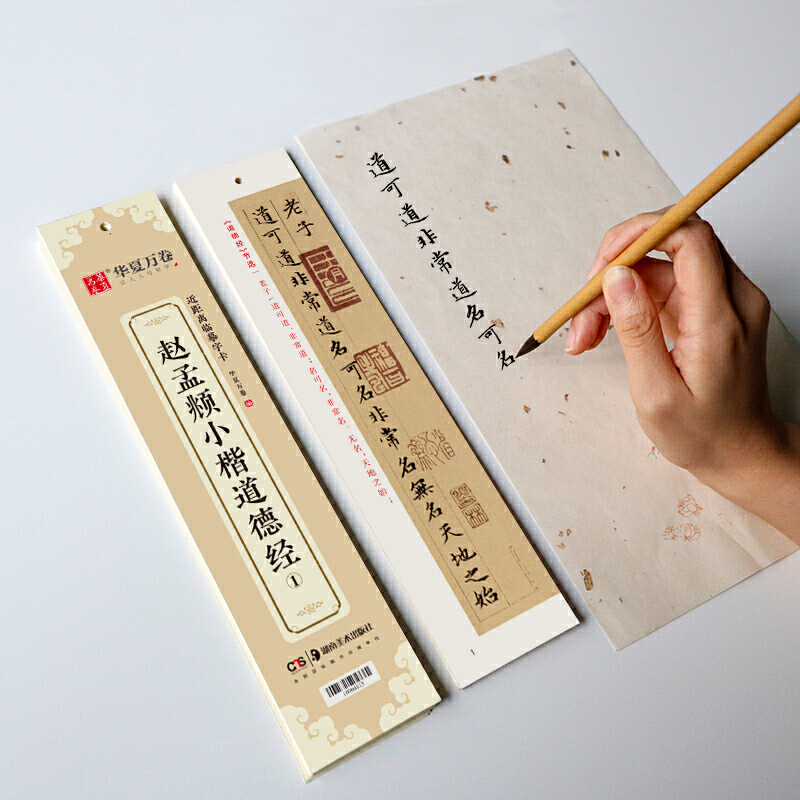 华夏万卷
让人人写好字
近距离临摹字卡
华夏万卷
赵孟頫小楷道德经①
CMS
湖南美术出版社
《道德经》节选一
老子 道可道，非常道；名可名，非常名。无名，天地之始；
老子
道可道非常道名可名非常名無名天地之始
1
道可道非常道名可名